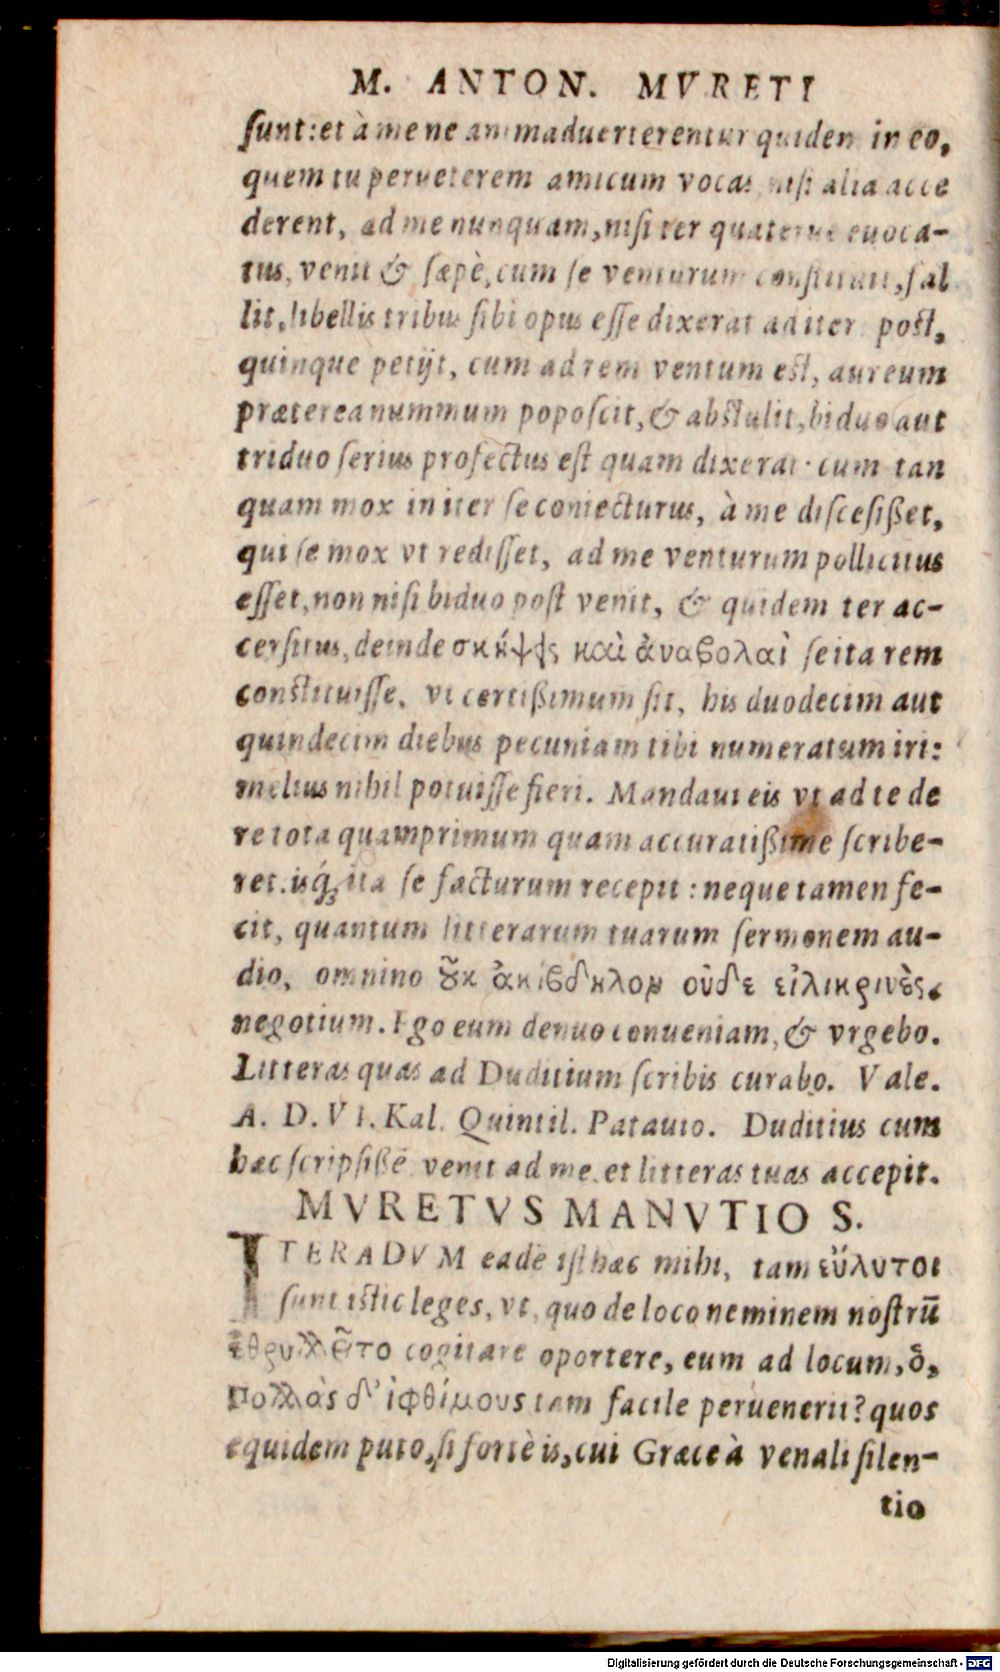 M. ANTON. MVRETI
sunt: et à me ne animaduerterentur quidem in eo,
quem tu perueterem amicum vocas nisi alia acce
derent, ad me nunquam, nisi ter quaterue euoca-
tus, venit & sæpè, cum se venturum constituit, fal
lit, libellis tribus sibi opus esse dixerat ad iter post,
quinque petijt, cum ad rem ventum est, aureum
præterea nummum poposcit, & abstulit, biduo aut
triduo serius profectus est quam dixerat cum tan
quam mox in iter se coniecturus, à me discesißet,
qui se mox vt redisset, ad me venturum pollicitus
esset, non nisi biduo post venit, & quidem ter ac-
cersitus, deinde σκήψς καὶ ἀναβολαὶ se ita rem
constituisse, vt certißimum sit, his duodecim aut
quindecim diebus pecuniam tibi numeratum iri:
melius nihil potuisse fieri. Mandaui eis vt ad te de
re tota quamprimum quam accuratißime scribe-
ret. isq́; ita se facturum recepit: neque tamen fe-
cit, quantum litterarum tuarum sermonem au-
dio, omnino ȣ̃κ ἀκίβδηλον οὐδε εἰλικρινὲς.
negotium. Ego eum denuo conueniam, & vrgebo.
Litteras quas ad Duditium scribis curabo. Vale.
A. D. VI. Kal. Quintil. Patauio. Duditius cum
hæc scripsißē venit ad me. et litteras tuas accepit.
MVRETVS MANVTIO S.
ITERADVM eadē isthæc mihi, tam εὔλυτοι
sunt istic leges, vt, quo de loco neminem nostrū
ἐθρυλλεῖτο cogitare oportere, eum ad locum, ὃ,
πολλὰς δ' ἰφθίμους tam facile peruenerit? quos
equidem puto, si fortè is, cui Græce à venali silen-
tio
Digitalisierung gefördert durch die Deutsche Forschungsgemeinschaft - DFG